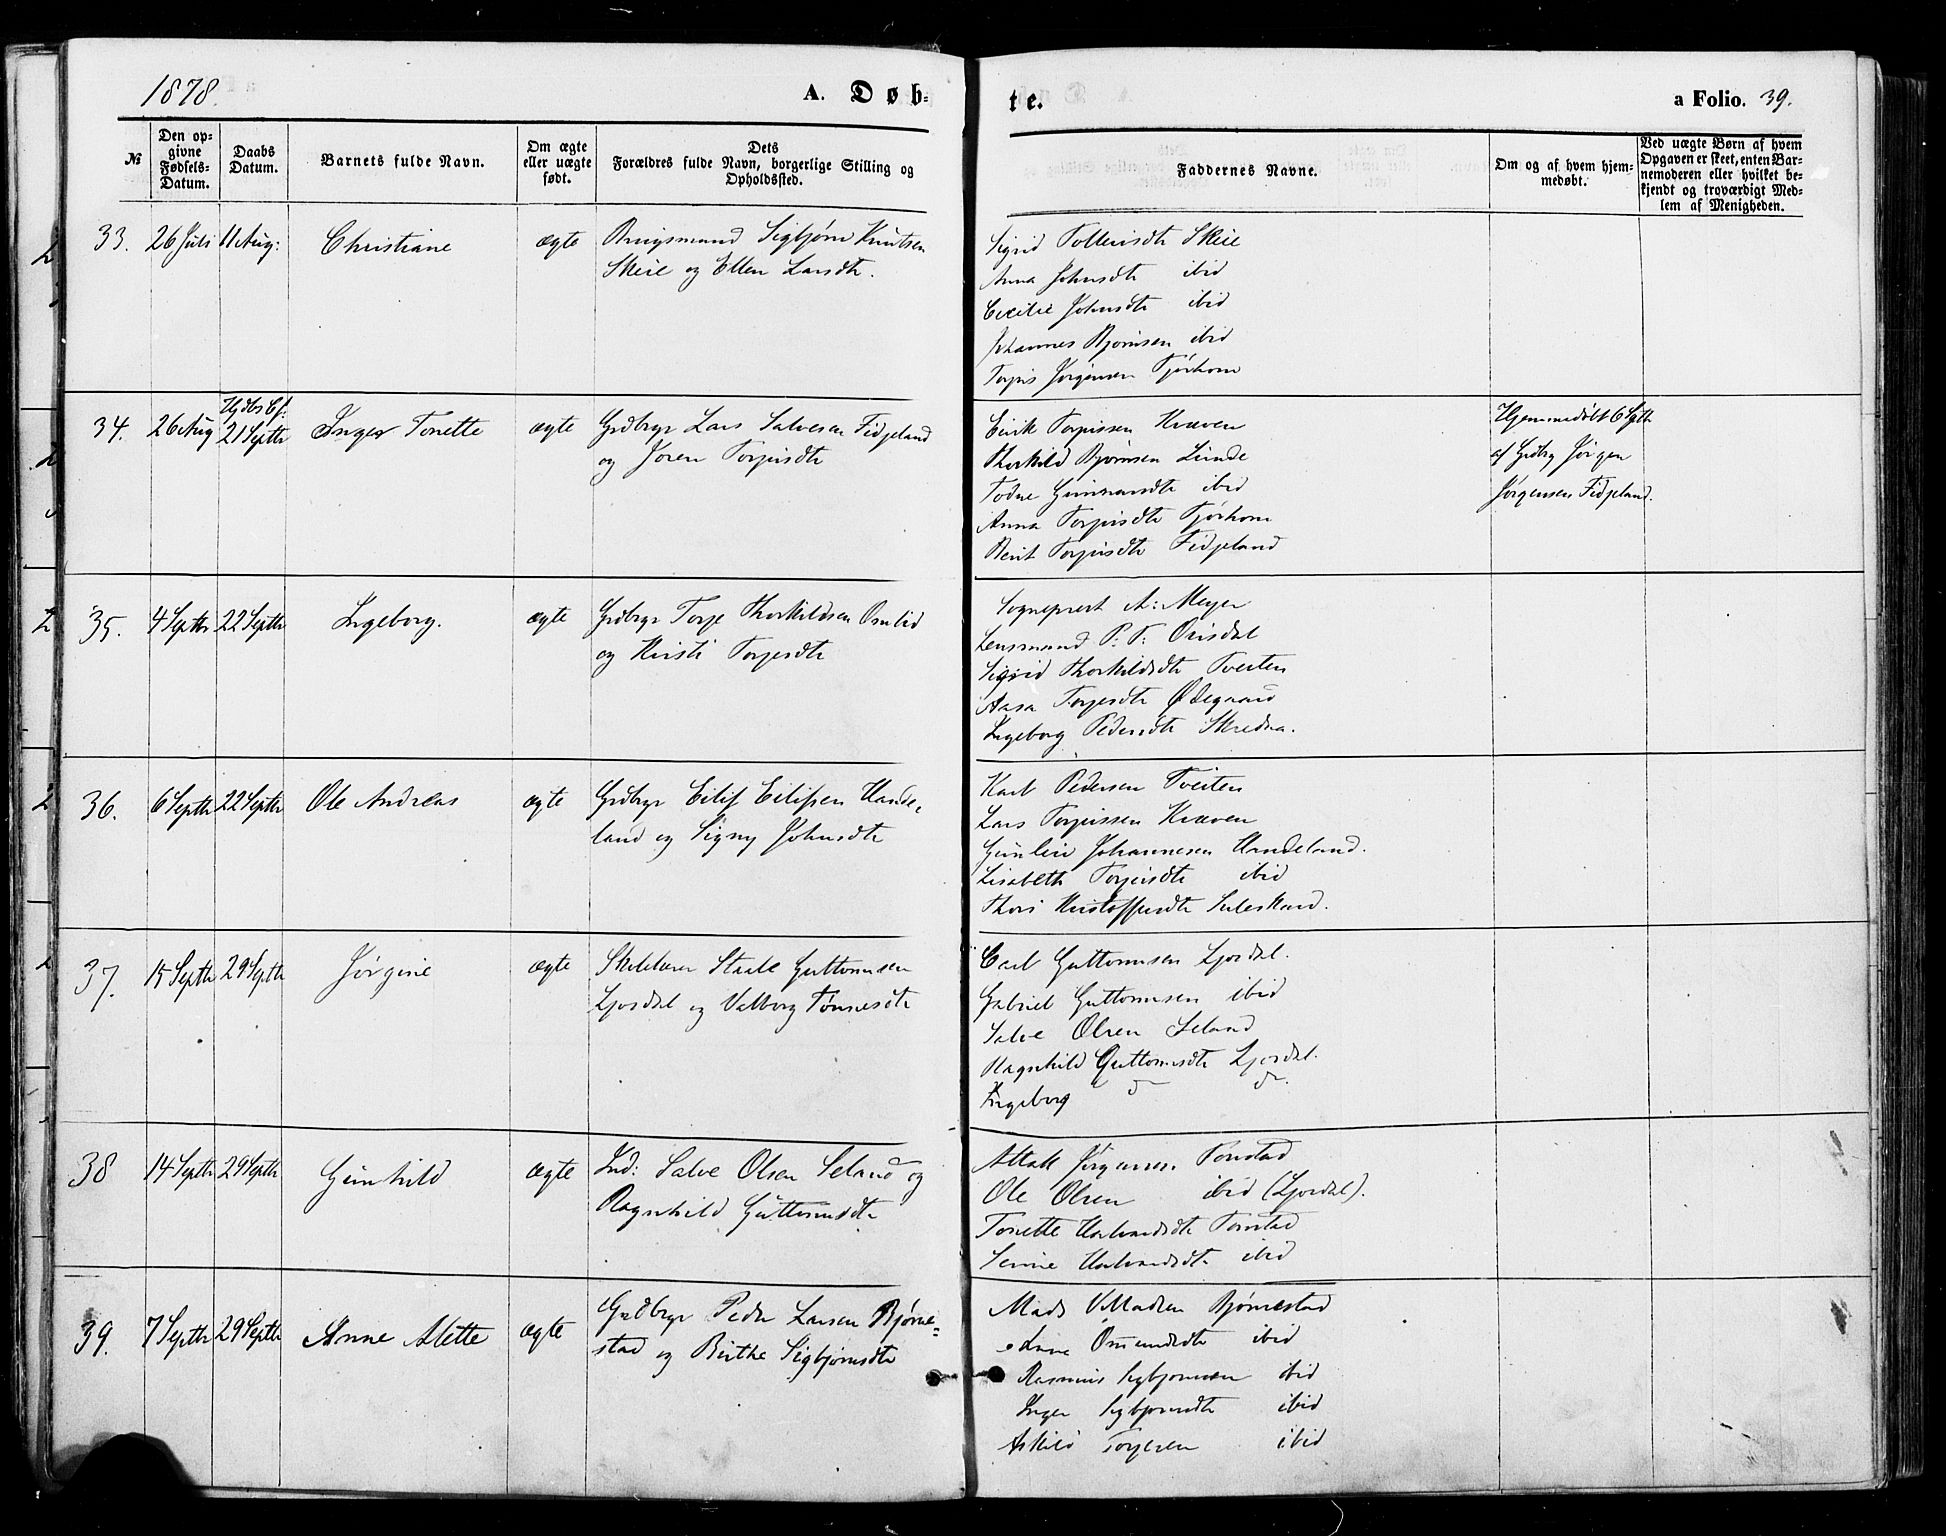 1878.
A. Døb-
te.
a Folio. 39.
№
Den op-
givne
Fødsels-
Datum.
Daabs
Datum.
Barnets fulde Navn.
Om ægte
eller uægte
født.
Dets
Forældres fulde Navn, borgerlige Stilling og
Opholdssted.
Faddernes Navne.
Om og af hvem hjem-
medøbt.
Ved uægte Børn af hvem
Opgaven er skeet, enten Bar-
nemoderen eller hvilket be-
kjendt og troværdigt Med-
lem af Menigheden.
33. 26 Juli 11 Aug: Christiane ægte Brugsmand Sigbjørn Knutsen
Skeie og Ellen Larsdtr.
Sigrid Tollevsdtr Skeie
Anna Johnsdtr ibid
Cecilie Johnsdtr ibid
Johannes Bjørnsen ibid
Torjus Jørgensen Tjørhom
34. 26 Aug 21 Septbr Inger Tonette ægte Grdbrgr Lars Salvesen Fidjeland
og Joren Torjusdtr
Eirik Torjussen Kvæven
Thorkild Bjørnsen Lunde
Todne Gunnarsdtr ibid
Anna Torjusdtr Tjørhom
Berit Torjusdtr Fidjeland
Hjemmedøbt 6 Sptb
af Grdbrg Jørgen
Jørgensen Fidjeland.
35. 4 Septbr 22 Septbr Ingeborg. ægte Grdbrgr Torje Thorkildsen Omlid
og Kirsti Torjesdtr
Sogneprest A: Meyer
Lensmand P. T. Ousdal
Sigrid Thorkildsdtr Tveiten
Aasa Torjesdtr Ødegaard
Ingeborg Pedersdtr Skredaa.
36. 6 Septbr 22 Septbr Ole Andreas ægte Grdbrgr Eilif Eilifsen Hande-
land og Signy Johnsdtr
Karl Pedersen Tveiten
Lars Torjussen Kvæven
Gunleiv Johannesen Handeland.
Lisabeth Torjusdtr ibid
Thori Kristoffersdtr Suleskard.
37. 15 Septbr 29 Septbr Jørgine ægte Skolelærer Staale Guttormsen
Ljosdal og Valborg Tønnesdtr
Carl Guttormsen Ljosdal.
Gabriel Guttormsen ibid
Salve Olsen Seland
Ragnhild Guttormsdtr Ljosdal.
Ingeborg do do.
38 14 Septbr 29 Septbr Gunhild ægte Ind: Salve Olsen Seland og
Ragnhild Guttormsdtr
Attak Jørgensen Tonstad
Ole Olsen ibid (Ljosdal).
Tonette Halvardsdtr Tonstad
Halvardsdtr ibid
39. 7 Septbr 29 Septbr Anne Alette ægte Grdbrgr Peder Larsen Bjørne-
stad og Birthe Sigbjørnsdtr
Mads Bjørnestad
Omundsdtr ibid
Rasmus Sigbjørnsen ibid
Inger Sigbjørnsdtr ibid
Askild Torjesen ibid